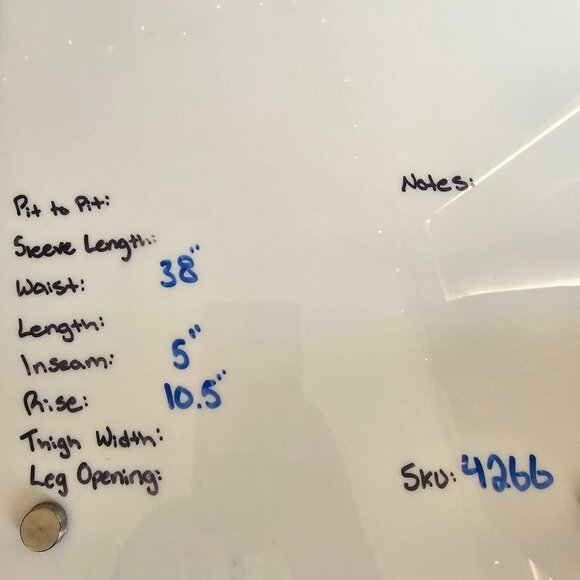 Notes:
Pit to Pit:
Sleeve Length:
Waist: 38"
Length:
Inseam: 5"
Rise: 10.5"
Thigh Width:
Leg Opening:
SKU: 4266